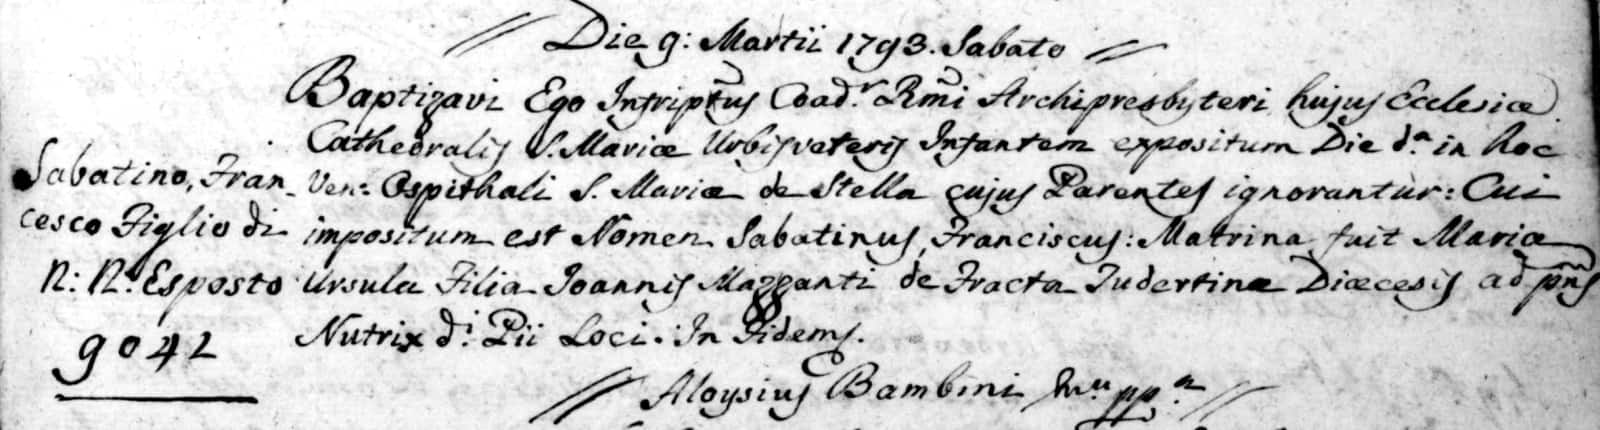 Die 9: Martii 1793. Sabato
Baptizavi Ego Infriptus Coad.r Rmi Archipresbyteri hujus Ecclesiæ
Cathedralis S. Mariæ Urbisveteris Infantem expositum Die d.a in hoc
Ven: Ospithali S. Mariæ de Stella cujus Parentes ignorantur: Cui
impositum est Nomen Sabatinus, Franciscus: Matrina fuit Maria
Ursula Filia Joannis Mazzanti de Fracta Tudertinæ Diœcesis ad pns
Nutrix d.i Pii Loci. In Fidem.
Aloysius Bambini mu pp.a
Sabatino, Fran-
cesco Figlio di
N: N: Esposto
9042